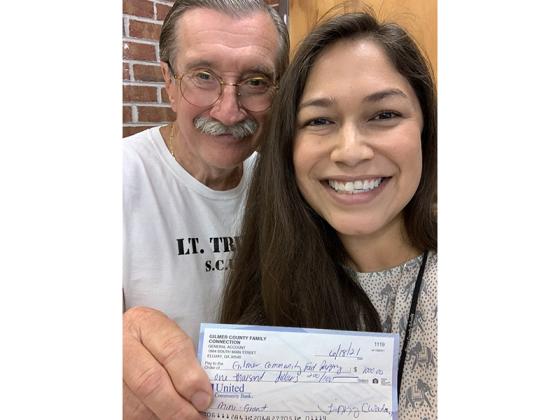 LT. TR
S.C.
GILMER COUNTY FAMILY
CONNECTION
GENERAL ACCOUNT
ELLIJAY, GA 30540
1119
6/18/21
Pay to the
Order of Gilmer Community Food Pantry $ 1000.00
one thousand dollars 00/100
United
Community Bank
mini-Grant